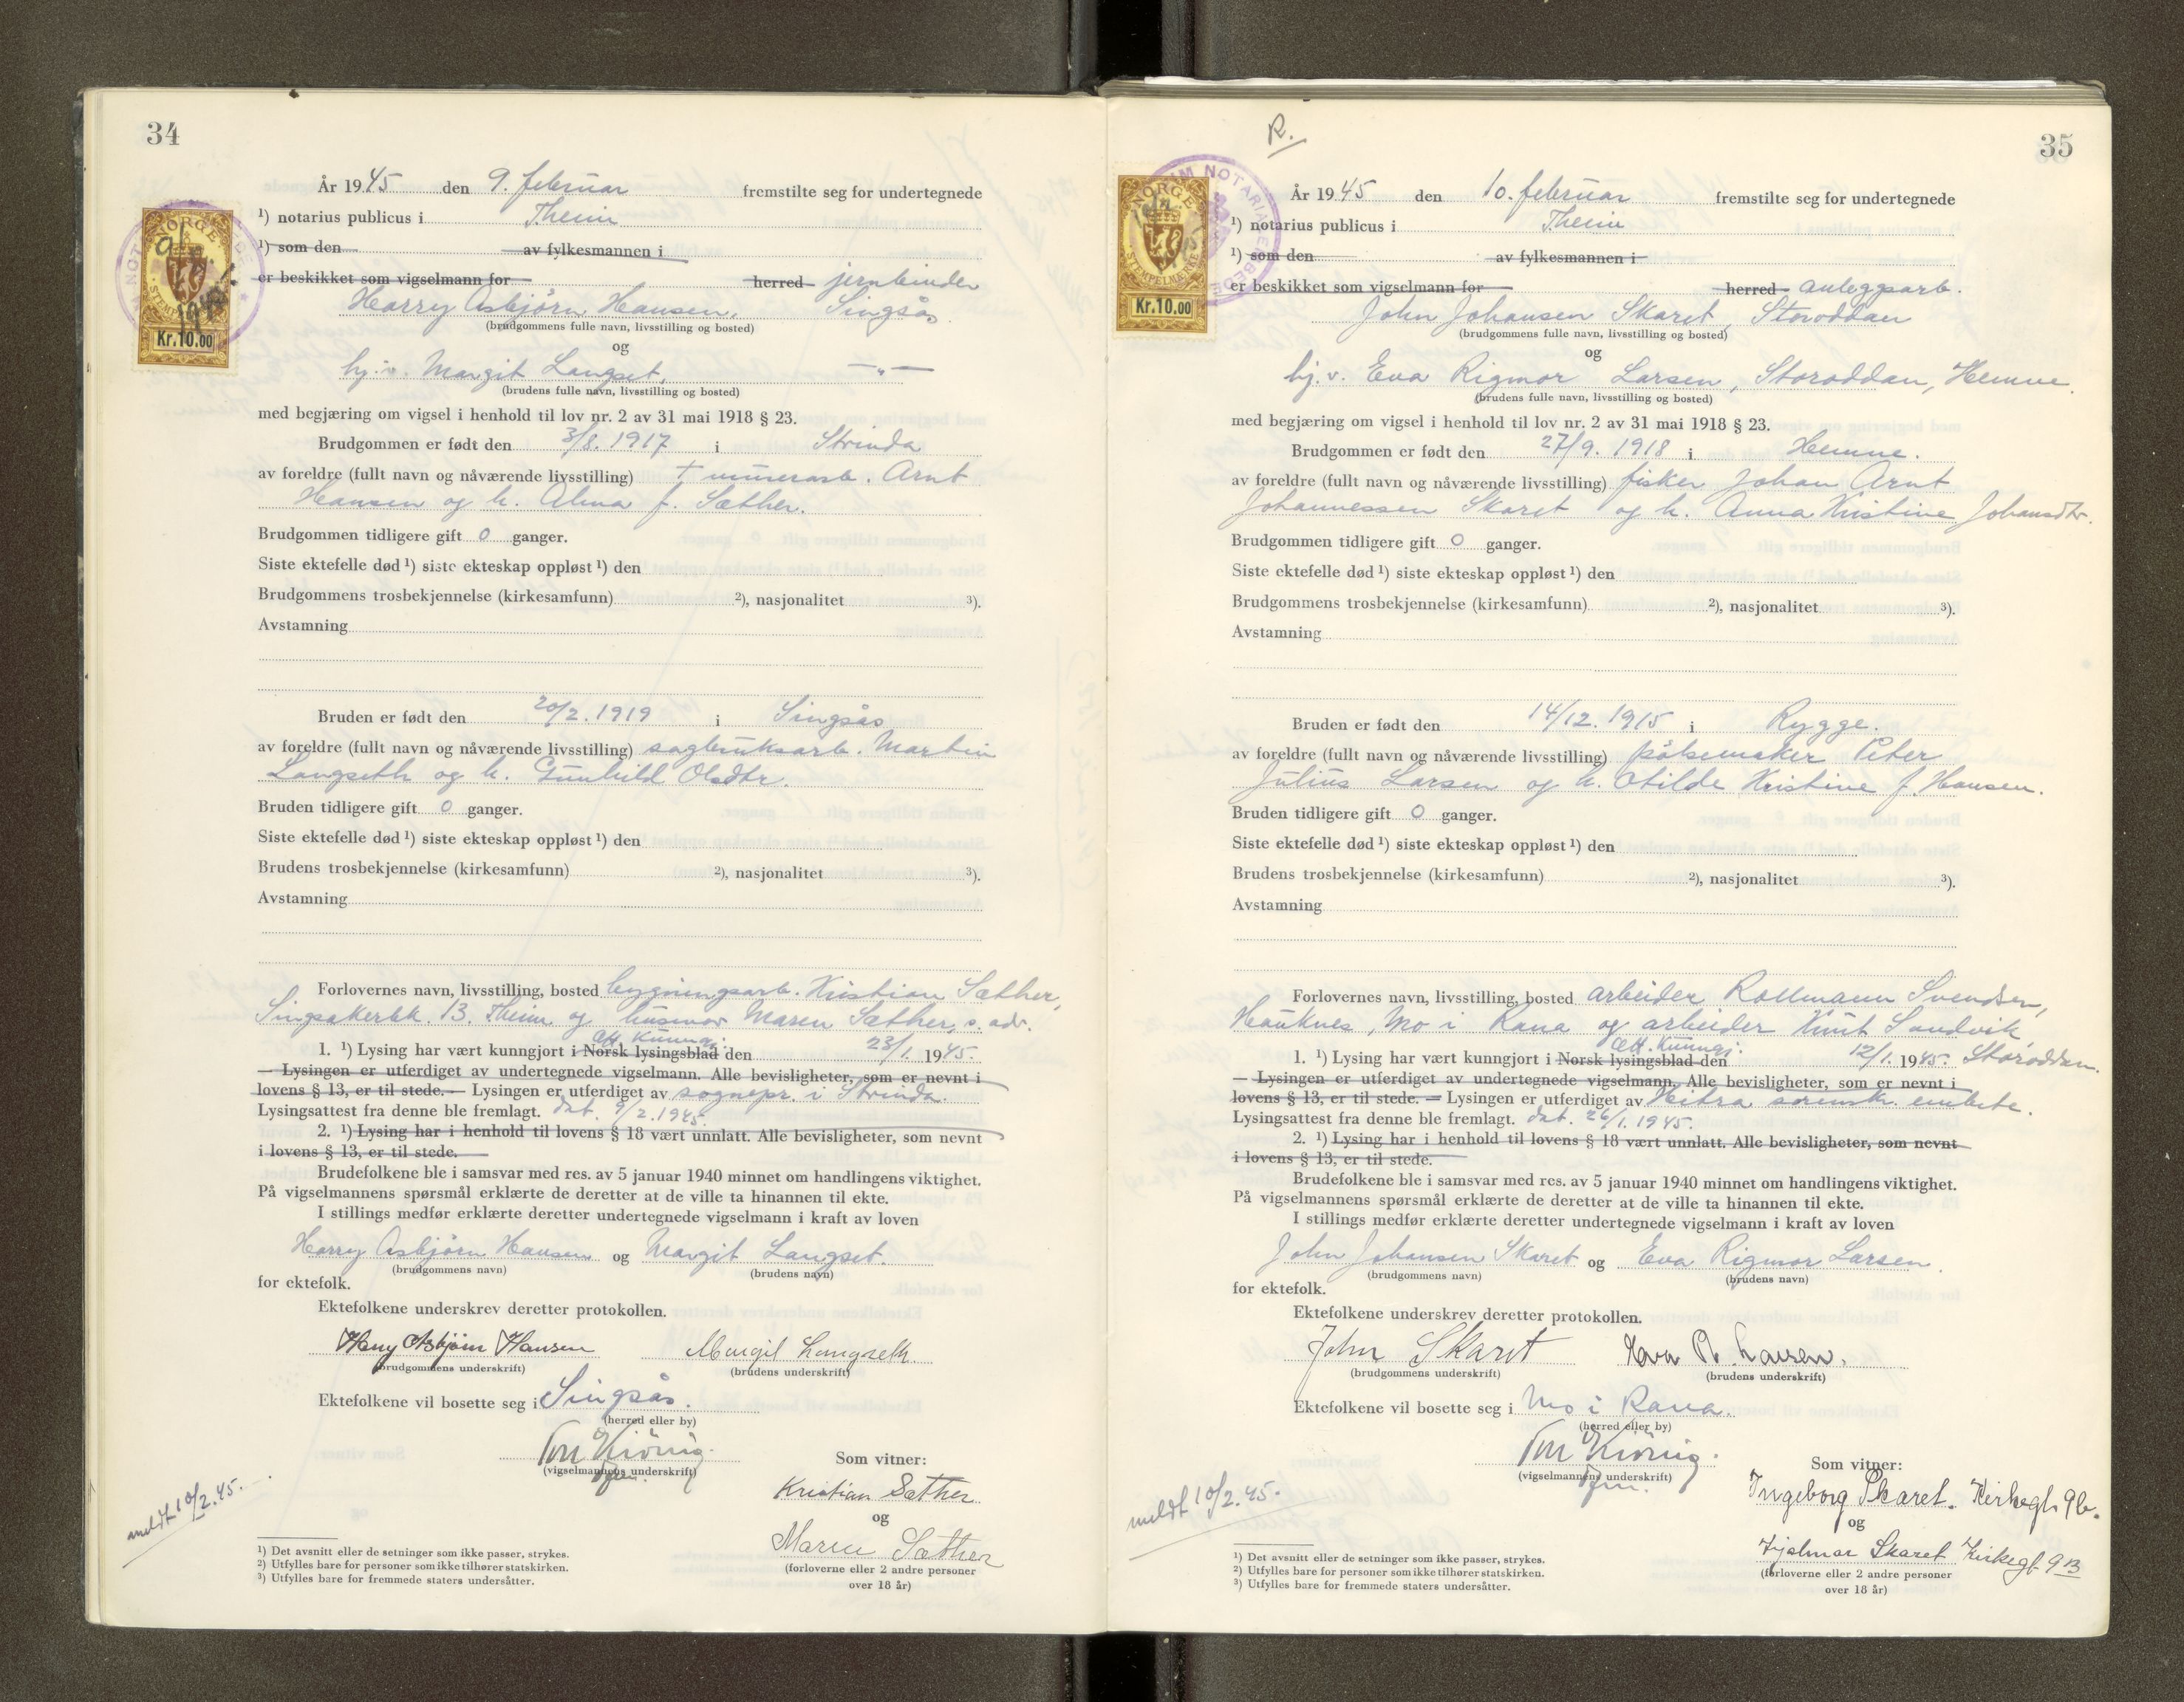 34
År 1945 den 9. februar fremstilte seg for undertegnede
1) notarius publicus i Theim
1) som den av fylkesmannen i
er beskikket som vigselmann for herred jernbinder
Harry Asbjørn Hansen, Singsås
(brudgommens fulle navn, livsstilling og bosted)
og
hj.v. Margit Langset, —"—
(brudens fulle navn, livsstilling og bosted)
med begjæring om vigsel i henhold til lov nr. 2 av 31 mai 1918 § 23.
Brudgommen er født den 3/8. 1917 i Strinda
av foreldre (fullt navn og nåværende livsstilling) † murerarb. Arnt
Hansen og h. Alma f. Sæther.
Brudgommen tidligere gift 0 ganger.
Siste ektefelle død 1) siste ekteskap oppløst 1) den
Brudgommens trosbekjennelse (kirkesamfunn) 2), nasjonalitet 3).
Avstamning
Bruden er født den 20/2. 1919 i Singsås
av foreldre (fullt navn og nåværende livsstilling) sagbruksarb. Martin
Langseth og h. Gunhild Olsdtr.
Bruden tidligere gift 0 ganger.
Siste ektefelle død 1) siste ekteskap oppløst 1) den
Brudens trosbekjennelse (kirkesamfunn) 2), nasjonalitet 3).
Avstamning
Forlovernes navn, livsstilling, bosted bygningsarb. Kristian Sæther,
Singsakerbk. 13. Theim og husmor Maren Sæther, s. adr.
Off. Kunngj:
1. 1) Lysing har vært kunngjort i Norsk lysingsblad den 23/1. 1945.
— Lysingen er utferdiget av undertegnede vigselmann. Alle bevisligheter, som er nevnt i
lovens § 13, er til stede. — Lysingen er utferdiget av sognepr. i Strinda.
Lysingsattest fra denne ble fremlagt. dat. 9/2. 1945.
2. 1) Lysing har i henhold til lovens § 18 vært unnlatt. Alle bevisligheter, som nevnt
i lovens § 13, er til stede.
Brudefolkene ble i samsvar med res. av 5 januar 1940 minnet om handlingens viktighet.
På vigselmannens spørsmål erklærte de deretter at de ville ta hinannen til ekte.
I stillings medfør erklærte deretter undertegnede vigselmann i kraft av loven
Harry Asbjørn Hansen og Margit Langset.
(brudgommens navn) (brudens navn)
for ektefolk.
Ektefolkene underskrev deretter protokollen.
Harry Asbjørn Hansen Margit Langseth.
(brudgommens underskrift) (brudens underskrift)
Ektefolkene vil bosette seg i Singsås.
(herred eller by)
(vigselmannens underskrift)
Som vitner:
Kristian Sæther
og
Maren Sæther
(forloverne eller 2 andre personer
over 18 år)
meldt 10/2.45.
1) Det avsnitt eller de setninger som ikke passer, strykes.
2) Utfylles bare for personer som ikke tilhører statskirken.
3) Utfylles bare for fremmede staters undersåtter.
NORGE
STEMPELMERKE
Kr.10.00
R.
35
År 1945 den 10. februar fremstilte seg for undertegnede
1) notarius publicus i Theim
1) som den av fylkesmannen i
er beskikket som vigselmann for herred anleggsarb.
John Johansen Skaret, Storoddan
(brudgommens fulle navn, livsstilling og bosted)
og
hj.v. Eva Rigmor Larsen, Storoddan, Hemne.
(brudens fulle navn, livsstilling og bosted)
med begjæring om vigsel i henhold til lov nr. 2 av 31 mai 1918 § 23.
Brudgommen er født den 27/9. 1918 i Hemne.
av foreldre (fullt navn og nåværende livsstilling) fisker Johan Arnt
Johannessen Skaret og h. Anna Kristine Johansdtr.
Brudgommen tidligere gift 0 ganger.
Siste ektefelle død 1) siste ekteskap oppløst 1) den
Brudgommens trosbekjennelse (kirkesamfunn) 2), nasjonalitet 3).
Avstamning
Bruden er født den 14/12. 1915 i Rygge.
av foreldre (fullt navn og nåværende livsstilling) pølsemaker Peter
Julius Larsen og h. Otilde Kristine f. Hansen.
Bruden tidligere gift 0 ganger.
Siste ektefelle død 1) siste ekteskap oppløst 1) den
Brudens trosbekjennelse (kirkesamfunn) 2), nasjonalitet 3).
Avstamning
Forlovernes navn, livsstilling, bosted arbeider Rollmann Svendsen,
Hauknes, Mo i Rana og arbeider Knut Sandvik
Off. Kunngj.
1. 1) Lysing har vært kunngjort i Norsk lysingsblad den 12/1. 1945. Storoddan.
— Lysingen er utferdiget av undertegnede vigselmann. Alle bevisligheter, som er nevnt i
lovens § 13, er til stede. — Lysingen er utferdiget av Hitra sorenskr. embete.
Lysingsattest fra denne ble fremlagt. dat. 26/1. 1945.
2. 1) Lysing har i henhold til lovens § 18 vært unnlatt. Alle bevisligheter, som nevnt
i lovens § 13, er til stede.
Brudefolkene ble i samsvar med res. av 5 januar 1940 minnet om handlingens viktighet.
På vigselmannens spørsmål erklærte de deretter at de ville ta hinannen til ekte.
I stillings medfør erklærte deretter undertegnede vigselmann i kraft av loven
John Johansen Skaret og Eva Rigmor Larsen.
(brudgommens navn) (brudens navn)
for ektefolk.
Ektefolkene underskrev deretter protokollen.
John Skaret Eva R. Larsen.
(brudgommens underskrift) (brudens underskrift)
Ektefolkene vil bosette seg i Mo i Rana.
(herred eller by)
(vigselmannens underskrift)
Som vitner:
Ingeborg Skaret. Kirkegt. 9b.
og
Hjalmar Skaret Kirkegt. 9B
(forloverne eller 2 andre personer
over 18 år)
meldt 10/2.45.
1) Det avsnitt eller de setninger som ikke passer, strykes.
2) Utfylles bare for personer som ikke tilhører statskirken.
3) Utfylles bare for fremmede staters undersåtter.
NORGE
STEMPELMERKE
Kr.10.00